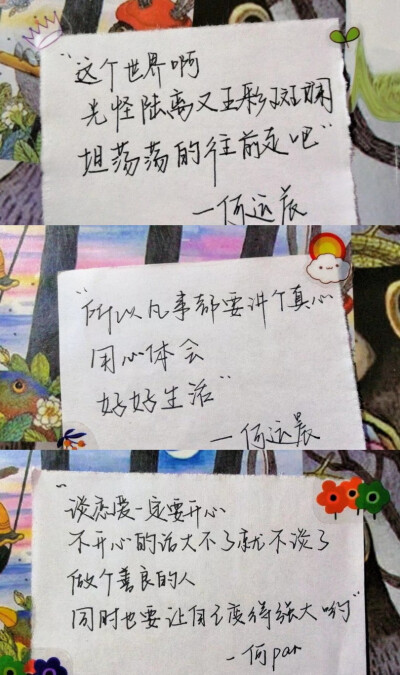 “这个世界啊
光怪陆离又五彩斑斓
坦荡荡的往前走吧”
—何远晨
“所以凡事都要讲个真心
用心体会
好好生活”
—何远晨
“
谈恋爱一定要开心
不开心的话大不了就不谈了
做个善良的人
同时也要让自己变得强大哟”
—何par